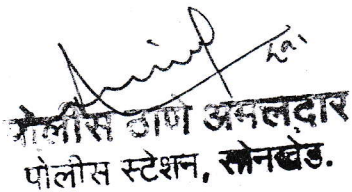 पोलीस ठाणे अमलदार
पोलीस स्टेशन, सोनखेड.